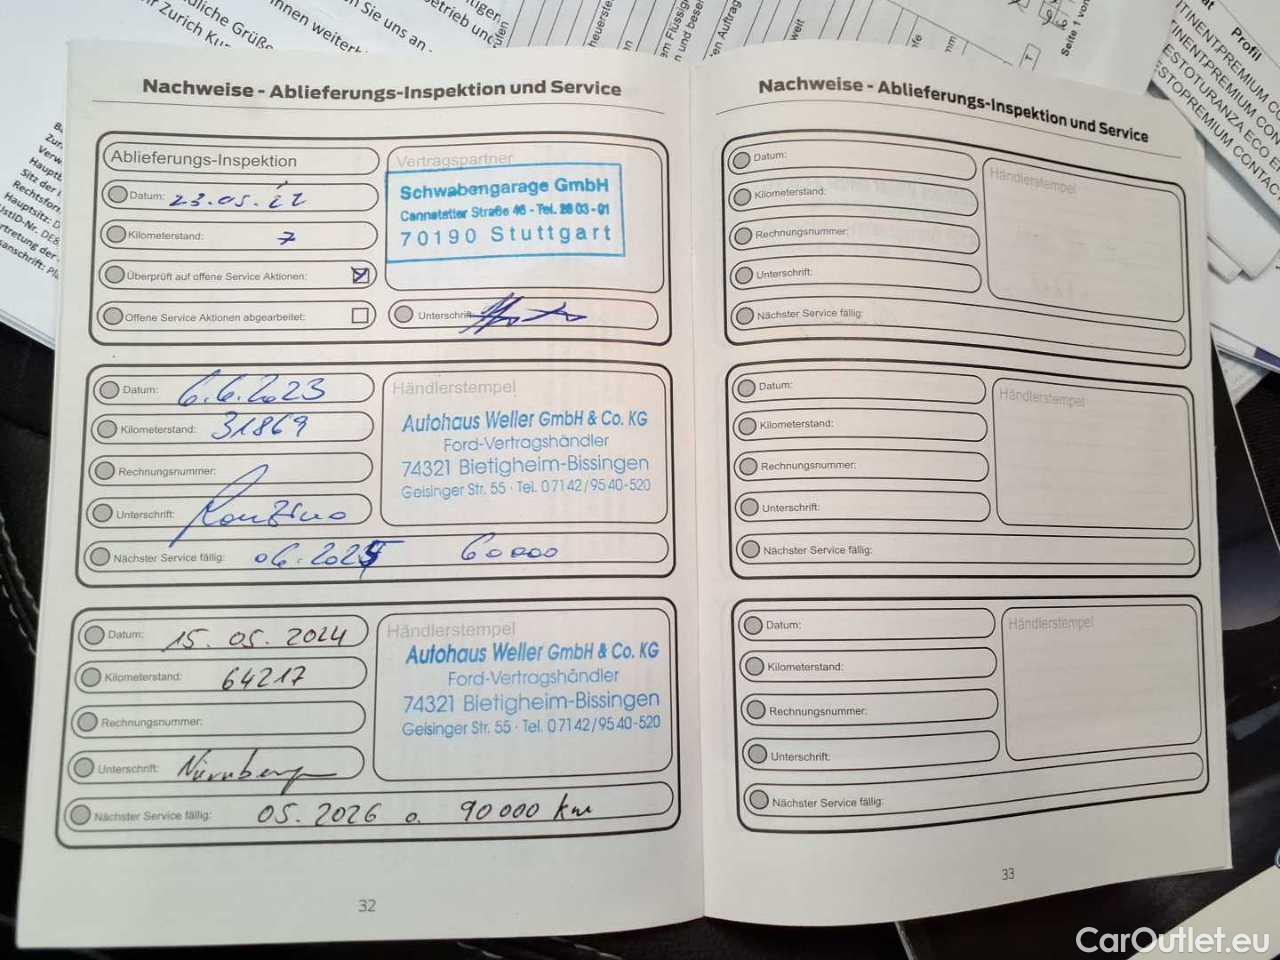 Nachweise - Ablieferungs-Inspektion und Service
Ablieferungs-Inspektion
Datum: 23.05.22
Kilometerstand: 7
Überprüft auf offene Service Aktionen:
Offene Service Aktionen abgearbeitet:
Vertragspartner
Schwabengarage GmbH
Cannstatter Straße 46 - Tel. 28 03 - 01
70190 Stuttgart
Unterschrift:
Datum: 6.6.2023
Kilometerstand: 31869
Rechnungsnummer:
Unterschrift:
Nächster Service fällig: 06.2025 60000
Händlerstempel
Autohaus Weller GmbH & Co. KG
Ford-Vertragshändler
74321 Bietigheim-Bissingen
Geisinger Str. 55 · Tel. 07142/9540-520
Datum: 15.05.2024
Kilometerstand: 64217
Rechnungsnummer:
Unterschrift: Nürnberger
Nächster Service fällig: 05.2026 o. 90000 km
Händlerstempel
Autohaus Weller GmbH & Co. KG
Ford-Vertragshändler
74321 Bietigheim-Bissingen
Geisinger Str. 55 · Tel. 07142/9540-520
32
Nachweise - Ablieferungs-Inspektion und Service
Datum:
Kilometerstand:
Rechnungsnummer:
Unterschrift:
Nächster Service fällig:
Händlerstempel
Datum:
Kilometerstand:
Rechnungsnummer:
Unterschrift:
Nächster Service fällig:
Händlerstempel
Datum:
Kilometerstand:
Rechnungsnummer:
Unterschrift:
Nächster Service fällig:
Händlerstempel
33
Profil
Seite 1 von
CarOutlet.eu